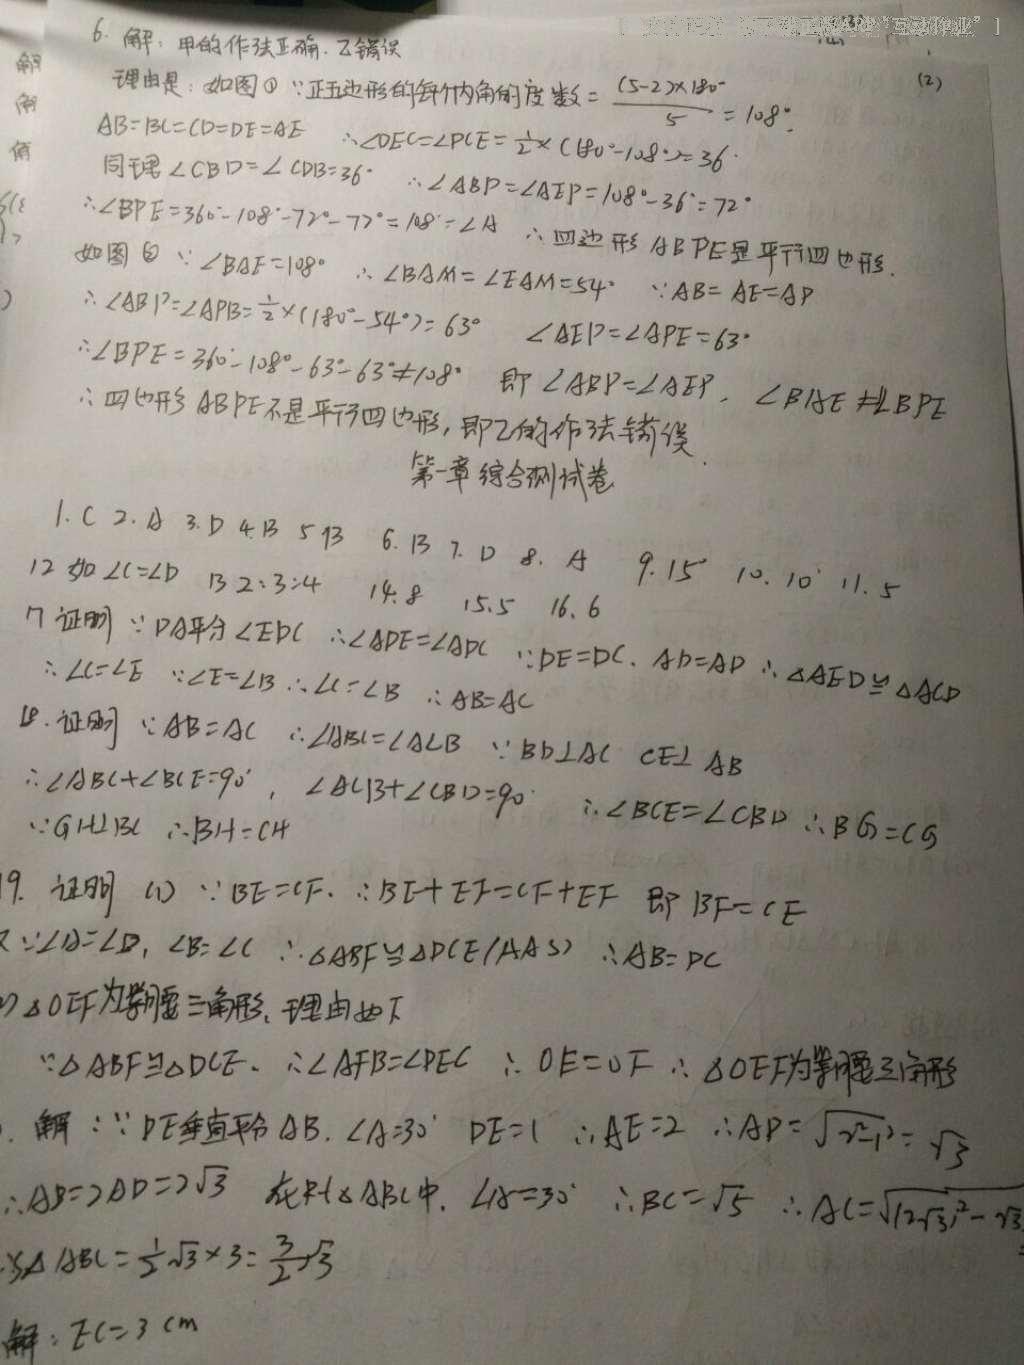 "互动作业" ]
6. 解: 甲的作法正确. 乙错误
(2)
理由是: 如图① ∵正五边形的每个内角的度数 = (5-2)×180°/5 = 108°.
AB=BC=CD=DE=AE ∴∠DEC=∠DCE=½×(180°-108°)=36°
同理∠CBD=∠CDB=36° ∴∠ABP=∠AEP=108°-36°=72°
∴∠BPE=360°-108°-72°-72°=108°=∠A ∴四边形ABPE是平行四边形.
如图② ∵∠BAE=108° ∴∠BAM=∠EAM=54° ∵AB=AE=AP
∴∠ABP=∠APB=½×(180°-54°)=63° ∠AEP=∠APE=63°
∴∠BPE=360°-108°-63°-63°≠108° 即∠ABP=∠AEP, ∠BAE≠∠BPE
∴四边形ABPE不是平行四边形, 即乙的作法错误.
第一章综合测试卷
1.C 2.A 3.D 4.B 5.B 6.B 7.D 8.A 9.15° 10.10° 11.5
12 如∠C=∠D 13 2:3:4 14.8 15.5 16.6
17 证明 ∵DA平分∠EDC ∴∠ADE=∠ADC ∵DE=DC. AD=AD ∴△AED≌△ACD
∴∠C=∠E ∵∠E=∠B ∴∠C=∠B ∴AB=AC
18. 证明 ∵AB=AC ∴∠ABC=∠ACB ∵BD⊥AC CE⊥AB
∴∠ABC+∠BCE=90°, ∠ACB+∠CBD=90° ∴∠BCE=∠CBD ∴BG=CG
∵GH⊥BC ∴BH=CH
19. 证明 (1) ∵BE=CF. ∴BE+EF=CF+EF 即BF=CE
又∵∠A=∠D, ∠B=∠C ∴△ABF≌△DCE(AAS) ∴AB=DC
△OEF为等腰三角形, 理由如下
∵△ABF≌△DCE. ∴∠AFB=∠DEC ∴OE=OF ∴△OEF为等腰三角形
解: ∵DE垂直平分AB. ∠A=30° DE=1 ∴AE=2 ∴AD=√(2²-1²)=√3
∴AB=2AD=2√3 在Rt△ABC中. ∠A=30° ∴BC=√5 ∴AC=√((2√3)²-√3
S△ABC=½√3×3=3/2√3
解: EC=3cm